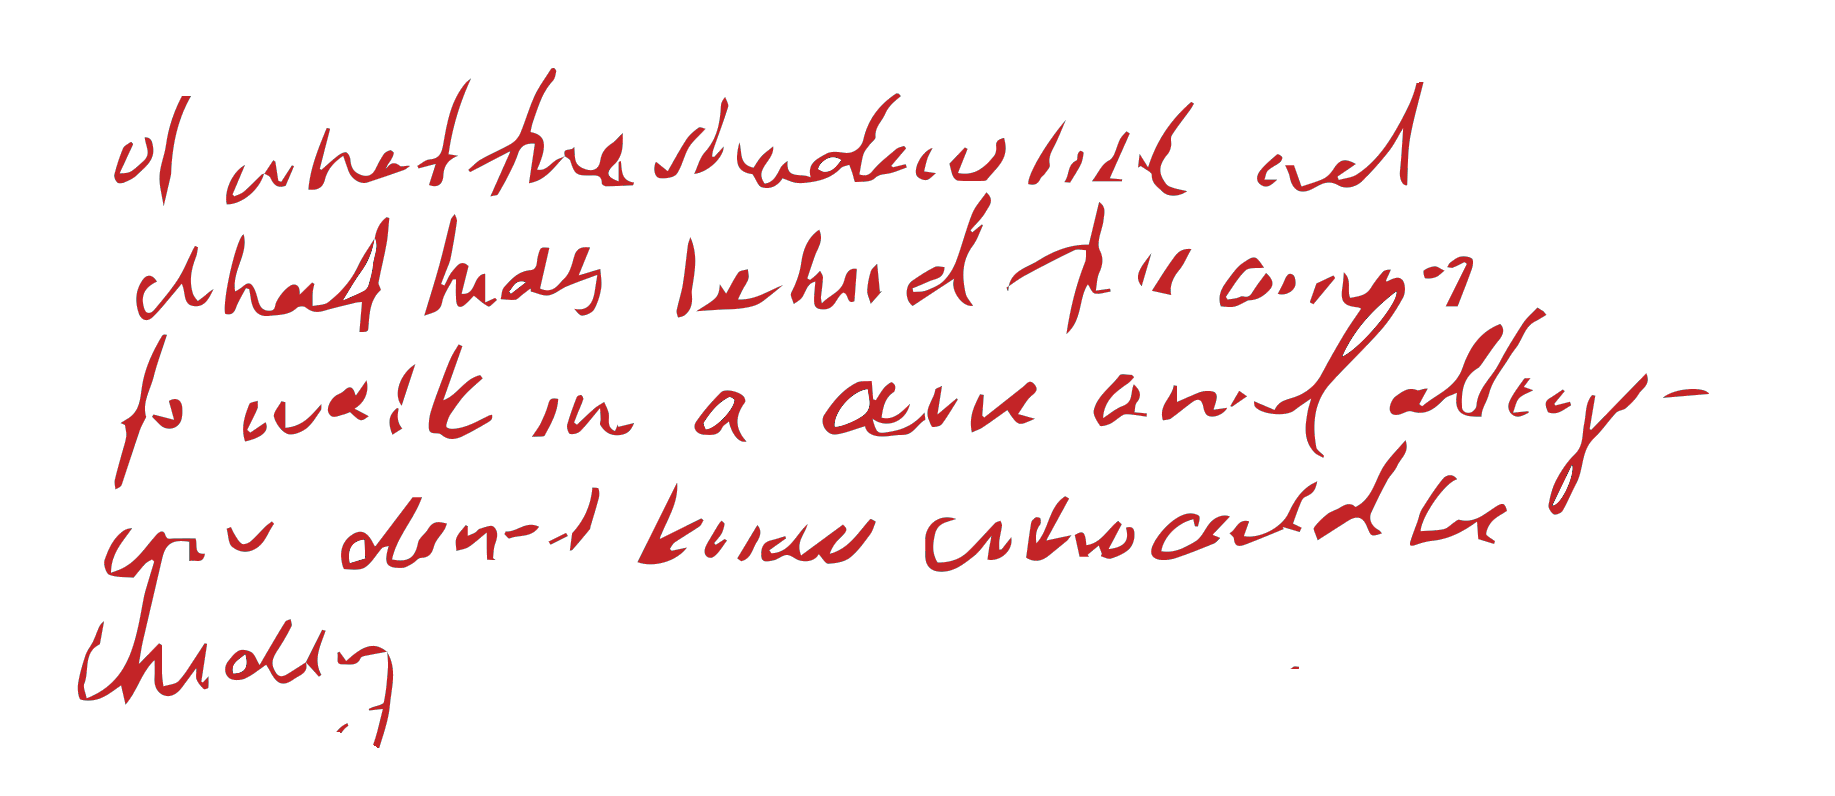 of what the shadows hide and
what hides behind the corner
to walk in a down and alley -
you don't know who could be
hiding